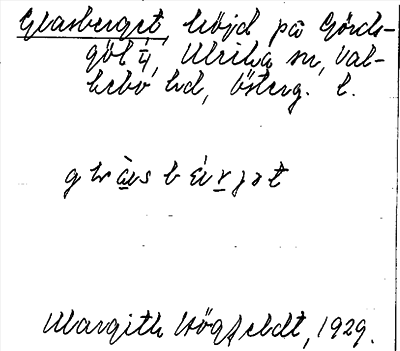 Glasberget, höjd på Görds-
göl ä, Ulrika sn, Val-
kebo hd, Österg. l.
Margith Högfeldt, 1929.